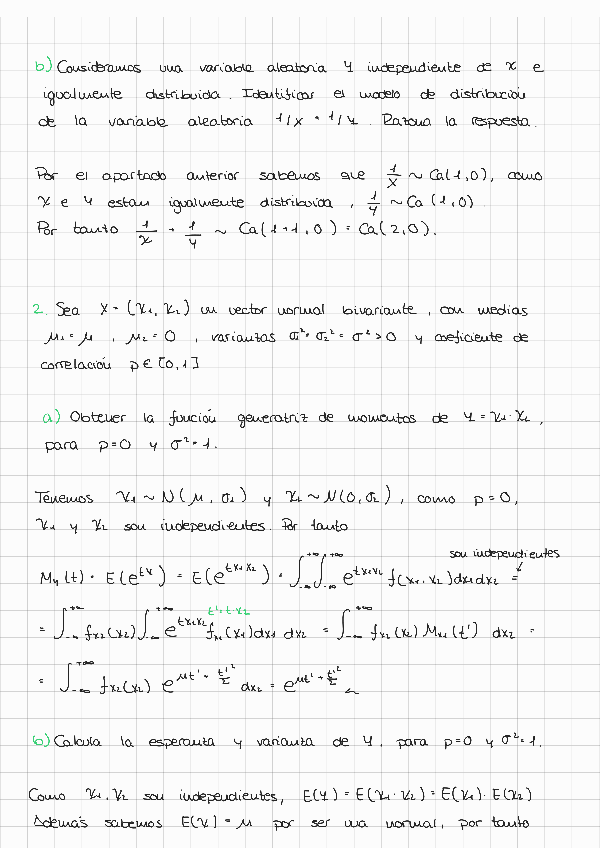 b) Consideramos una variable aleatoria Y independiente de X e
igualmente distribuida. Identificar el modelo de distribución
de la variable aleatoria 1/X + 1/Y. Razona la respuesta.
Por el apartado anterior sabemos que 1/X ~ Ca(1,0), como
X e Y estan igualmente distribuida, 1/Y ~ Ca (1,0)
Por tanto 1/X + 1/Y ~ Ca(1+1,0) = Ca(2,0).
2. Sea X = (X₁, X₂) un vector normal bivariante, con medias
μ₁ = μ, μ₂ = 0, varianzas σ₁² = σ₂² = σ² > 0 y coeficiente de
correlación ρ ∈ [0,1]
a) Obtener la función generatriz de momentos de Y = X₁·X₂,
para ρ=0 y σ²=1.
Tenemos X₁ ~ N(μ, σ₁) y X₂ ~ N(0, σ₂), como ρ=0,
X₁ y X₂ son independientes. Por tanto
son independientes
M_Y(t) = E(e^{tY}) = E(e^{tX₁X₂}) = ∫_{-∞}^{+∞} ∫_{-∞}^{+∞} e^{tx₁x₂} f(x₁,x₂)dx₁dx₂ =
t'=t·x₂
= ∫_{-∞}^{+∞} f_{X₂}(x₂) ∫_{-∞}^{+∞} e^{tx₁x₂} f_{X₁}(x₁)dx₁ dx₂ = ∫_{-∞}^{+∞} f_{X₂}(x₂) M_{X₁}(t') dx₂ =
= ∫_{-∞}^{+∞} f_{X₂}(x₂) e^{μt' + t'²/2} dx₂ = e^{μt' + t'²/2}
b) Calcula la esperanza y varianza de Y, para ρ=0 y σ²=1.
Como X₁, X₂ son independientes, E(Y) = E(X₁·X₂) = E(X₁)·E(X₂)
Además sabemos E(X₁) = μ por ser una normal, por tanto